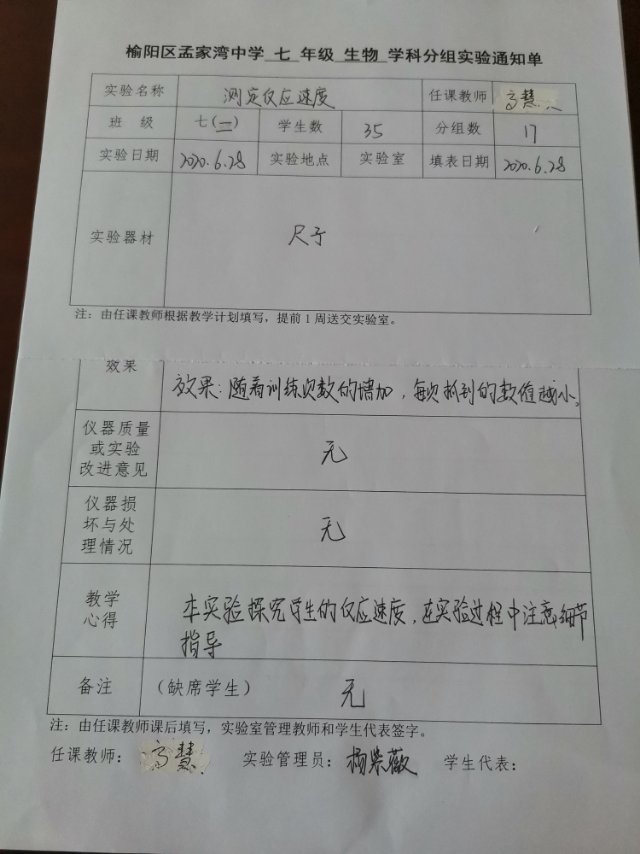 榆阳区孟家湾中学 七 年级 生物 学科分组实验通知单
实验名称 测定反应速度 任课教师 高慧
班 级 七(二) 学生数 35 分组数 17
实验日期 2020.6.28 实验地点 实验室 填表日期 2020.6.28
实验器材 尺子
注：由任课教师根据教学计划填写，提前1周送交实验室。
效果 效果：随着训练次数的增加，每次抓到的数值越小。
仪器质量
或实验
改进意见
无
仪器损
坏与处
理情况
无
教学
心得
本实验探究学生的反应速度，在实验过程中注意细节
指导
备注 （缺席学生） 无
注：由任课教师课后填写，实验室管理教师和学生代表签字。
任课教师： 高慧 实验管理员： 杨荣薇 学生代表：